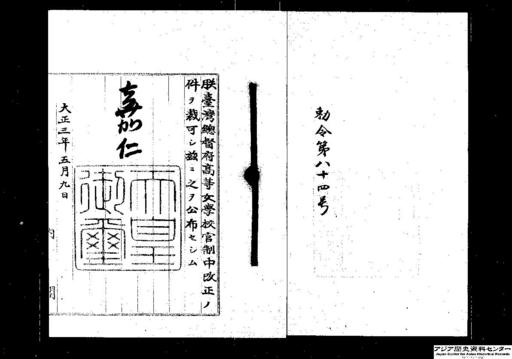 勅令第八十四号
朕臺灣總督府高等女學校官制中改正ノ
件ヲ裁可シ茲ニ之ヲ公布セシム
嘉仁
天皇
御璽
大正三年五月九日
内閣
アジア歴史資料センター
Japan Center for Asian Historical Records